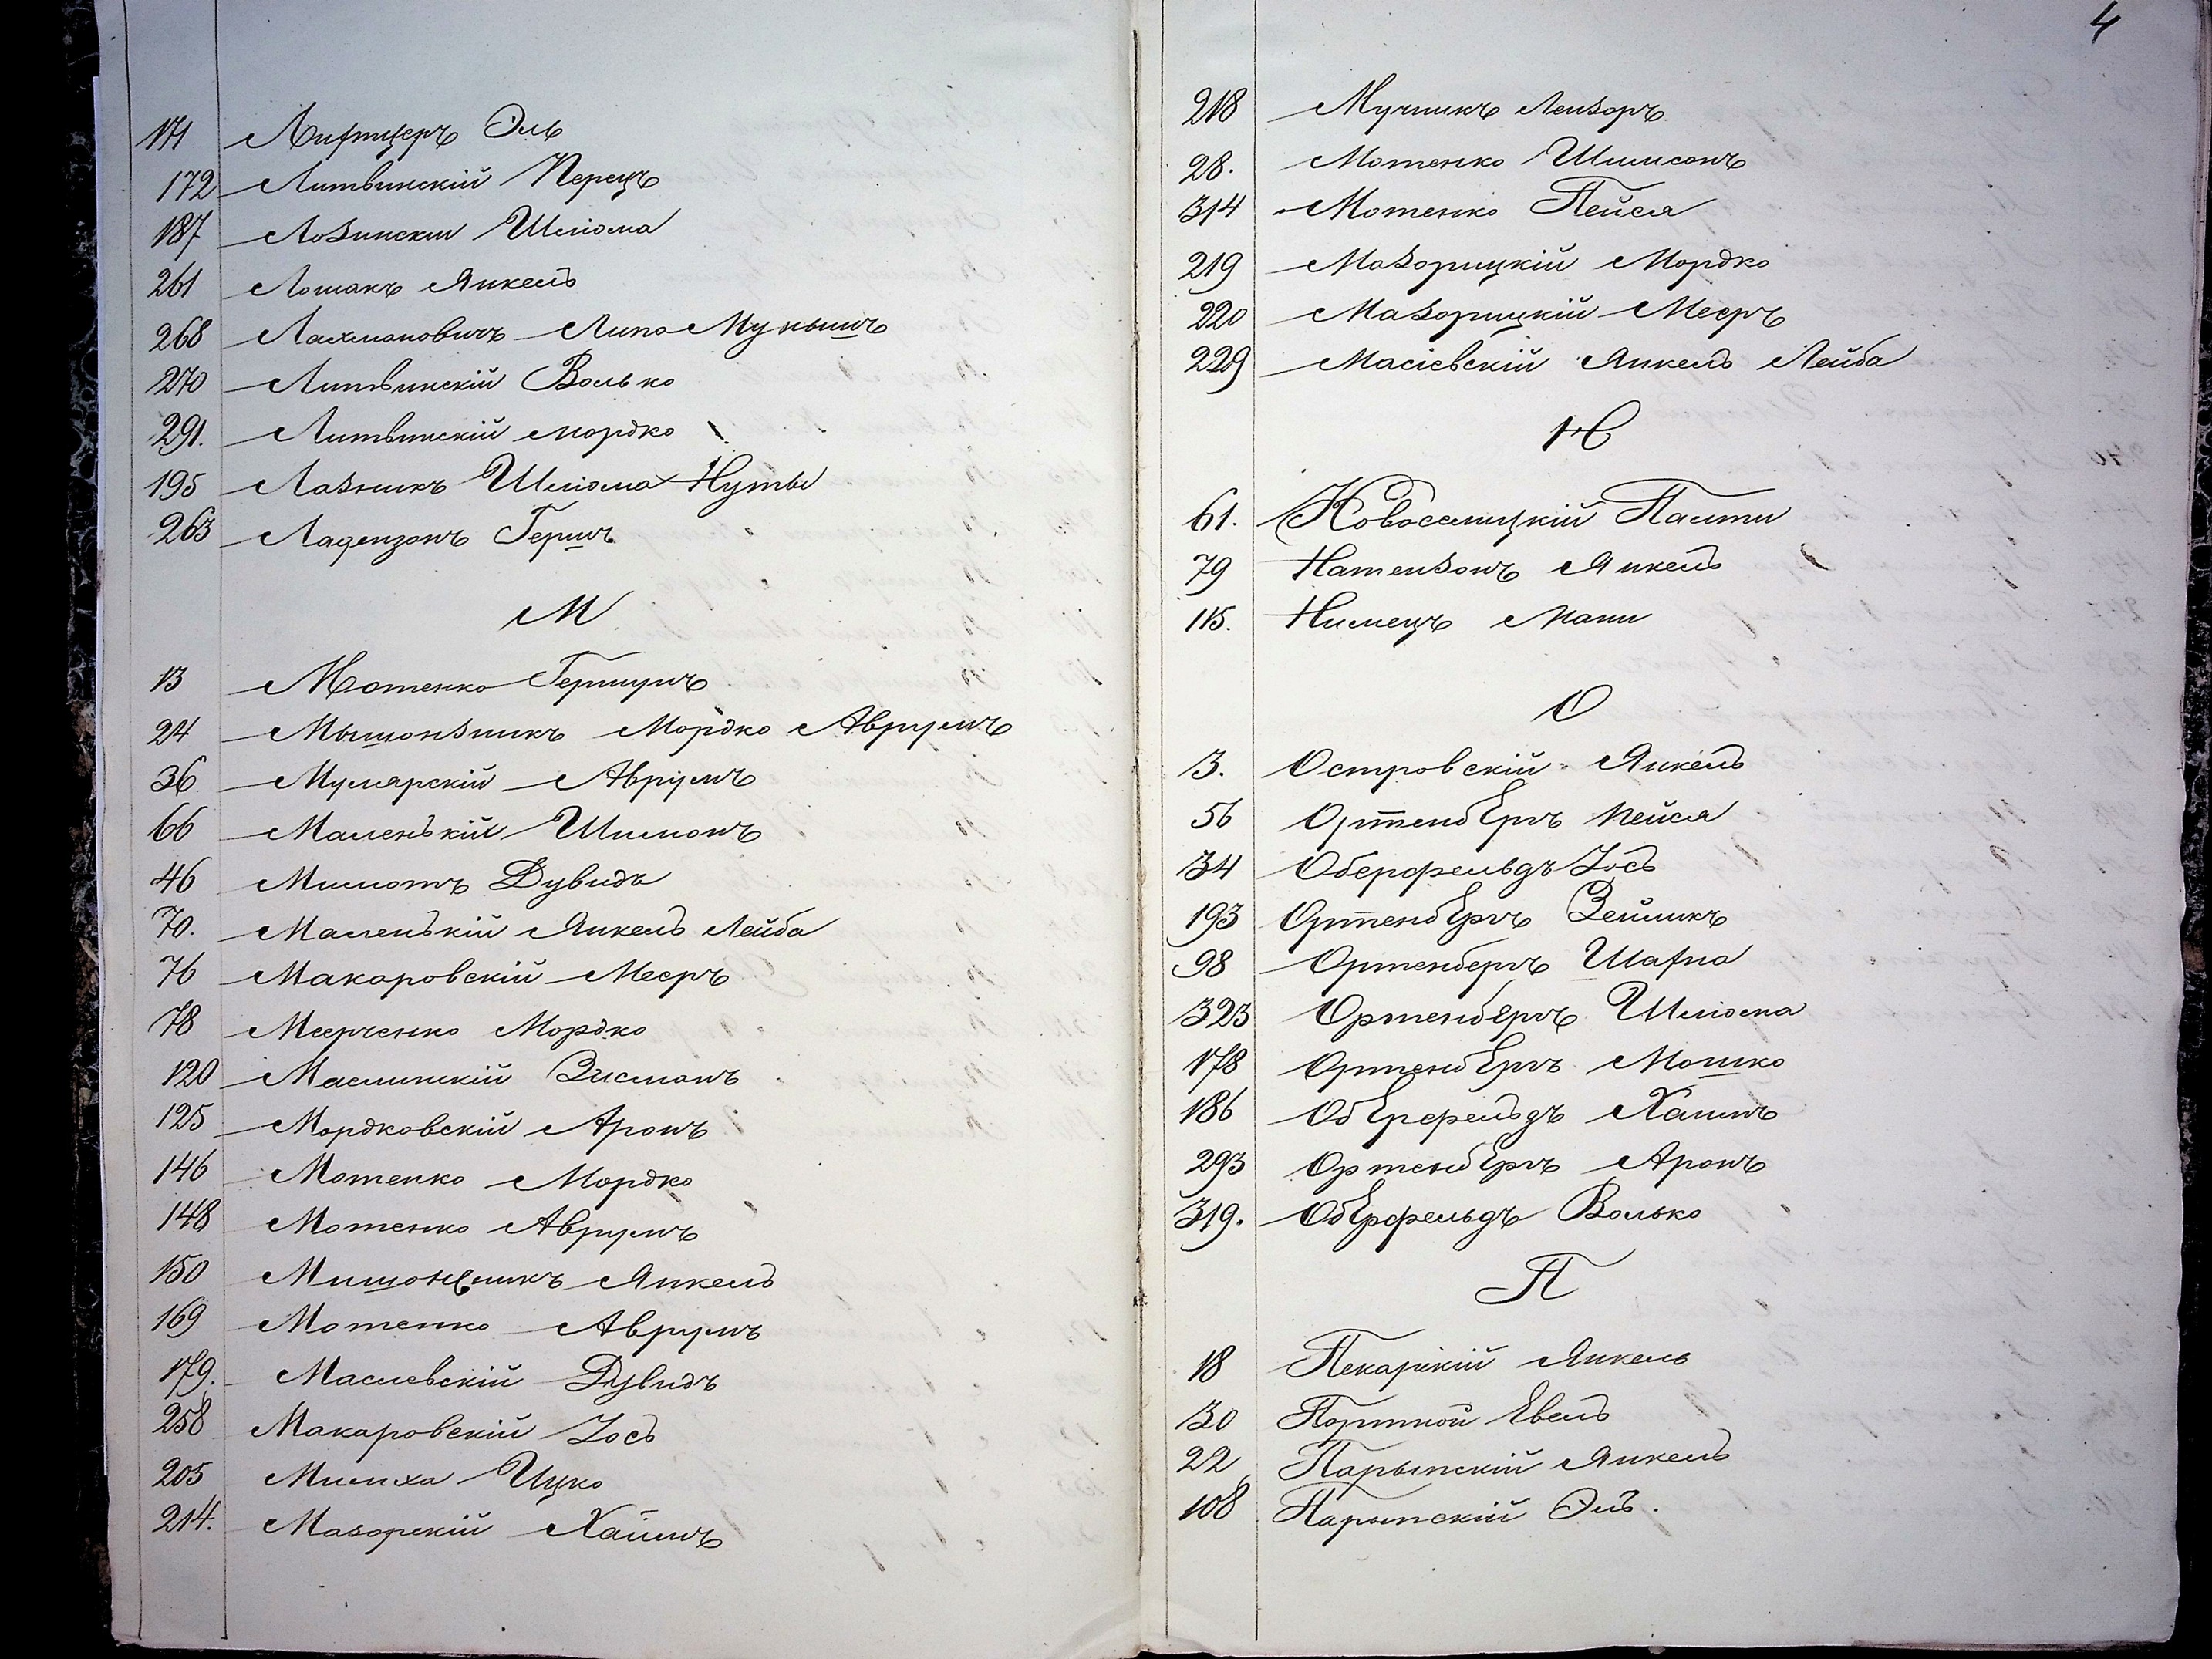 171 Лифшицеръ Эль
172 Литвинскій Перецъ
187 Лозинскии Шліома
261 Лошакъ Янкель
268 Лахмановичъ Липа
270 Литвинскій Волько
291. Литвинскій мордко
195 Лазникъ Шліома Нуты
263 Ладензонъ Гершъ
М
13 Мотенко Гершунъ
24 Мышонзникъ Мордко Аврумъ
36 Мулярскій Аврумъ
66 Маленькій Шимонъ
46 Дувидъ
70. Маленькій Янкель Лейба
76 Макаровскій Мееръ
78 Меерченко Мордко
120 Маслинскій Зисманъ
125 Мордковскій Аронъ
146 Мотенко Мордко
148 Мотенко Аврумъ
150 Янкель
169 Мотенко Аврумъ
179. Маслевскій Дувидъ
258 Макаровскій Іось
205 Милиха Ицко
214. Мазорскій Хаимъ
4
218 Мучникъ Лейзоръ
28. Мотенко Шимсонъ
314 Мотенко Пейся
219 Мазорицкій Мордко
220 Мазорицкій Мееръ
229 Масіевскій Янкель Лейба
Н
61. Новоселицкій Палти
79 Натензонъ Янкель
115. Нимецъ Мани
О
3. Островскій Янкель
56 Ортенбергъ Пейся
34 Оберфельдъ Іось
193 Ортенбергъ Зейликъ
98 Ортенбергъ Шафна
323 Ортенбергъ Шліома
178 Ортенбергъ Мошко
186 Оберфельдъ Хаимъ
293 Ортенбергъ Аронъ
319. Оберфельдъ Волько
П
18 Пекарскій Янкель
30 Портной Евель
22 Парыпскій Янкель
108 Парыпскій Эль.